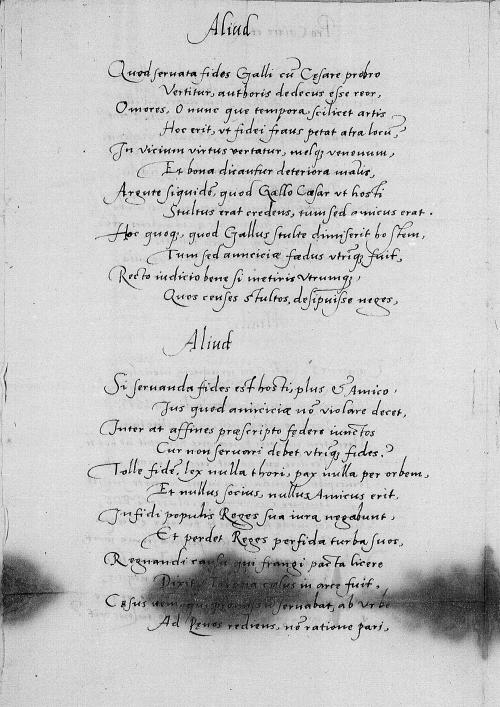 Aliud
Quod servata fides Galli cũ Cęsare probro
Vertitur, authoris dedecus esse reor,
O mores, O nunc que tempora, scilicet artis
Hoc erit, vt fidei fraus petat atra locũ?
In vicium virtus vertatur, melq; venenum,
Et bona dicantur deteriora malis,
Argute siquidẽ, quod Gallo Cæsar vt hosti
Stultus erat credens, tum sed amicus erat.
Hoc quoq, quod Gallus stulte dimiserit hostem,
Tum sed amiciciæ fœdus vtriq fuit,
Recto iudicio bene si metiris vtrumq,
Quos censes stultos, desipuisse neges,
Aliud
Si servanda fides est hosti, plus & Amico,
Jus quod amiciciæ nõ violare decet,
Inter at affines præscripto fędere iunctos
Cur non servari debet vtriq; fides?
Tolle fidẽ, lex nulla thori, pax nulla per orbem,
Et nullus socius, nullus Amicus erit,
Infidi populis Reges sua iura negabunt,
Et perdet Reges perfida turba suos,
Regnandi causa qui frangi pacta licere
Dixit, cæsus in arce fuit,
Cęsus servabat, ab vrbe
Ad Pęnos rediens, nõ ratione pari,